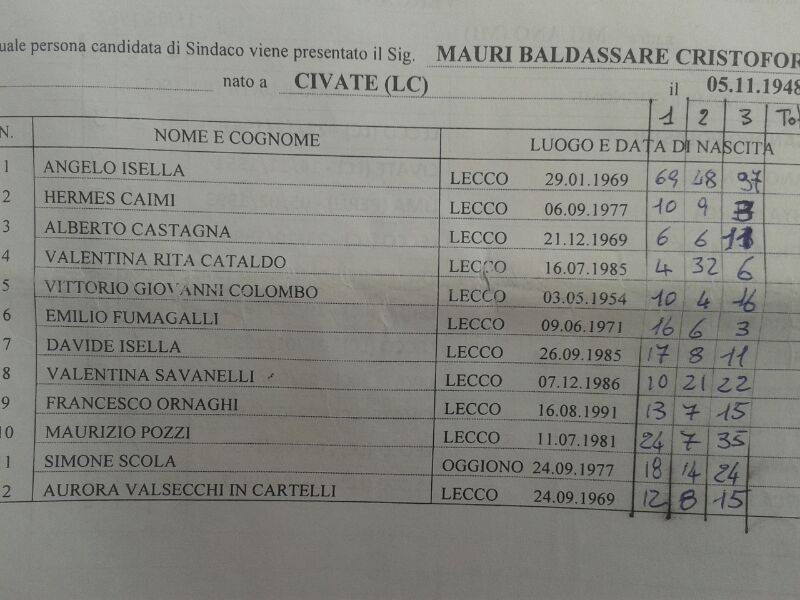 uale persona candidata di Sindaco viene presentato il Sig. MAURI BALDASSARE CRISTOFOR
nato a CIVATE (LC) il 05.11.1948
1 2 3 Tot
N. NOME E COGNOME LUOGO E DATA DI NASCITA
1 ANGELO ISELLA LECCO 29.01.1969 69 48 97
2 HERMES CAIMI LECCO 06.09.1977 10 9
3 ALBERTO CASTAGNA LECCO 21.12.1969 6 6 11
4 VALENTINA RITA CATALDO LECCO 16.07.1985 4 32 6
5 VITTORIO GIOVANNI COLOMBO LECCO 03.05.1954 10 4 16
6 EMILIO FUMAGALLI LECCO 09.06.1971 16 6 3
7 DAVIDE ISELLA LECCO 26.09.1985 17 8 11
8 VALENTINA SAVANELLI LECCO 07.12.1986 10 21 22
9 FRANCESCO ORNAGHI LECCO 16.08.1991 13 7 15
10 MAURIZIO POZZI LECCO 11.07.1981 24 7 35
1 SIMONE SCOLA OGGIONO 24.09.1977 18 14 24
2 AURORA VALSECCHI IN CARTELLI LECCO 24.09.1969 12 8 15